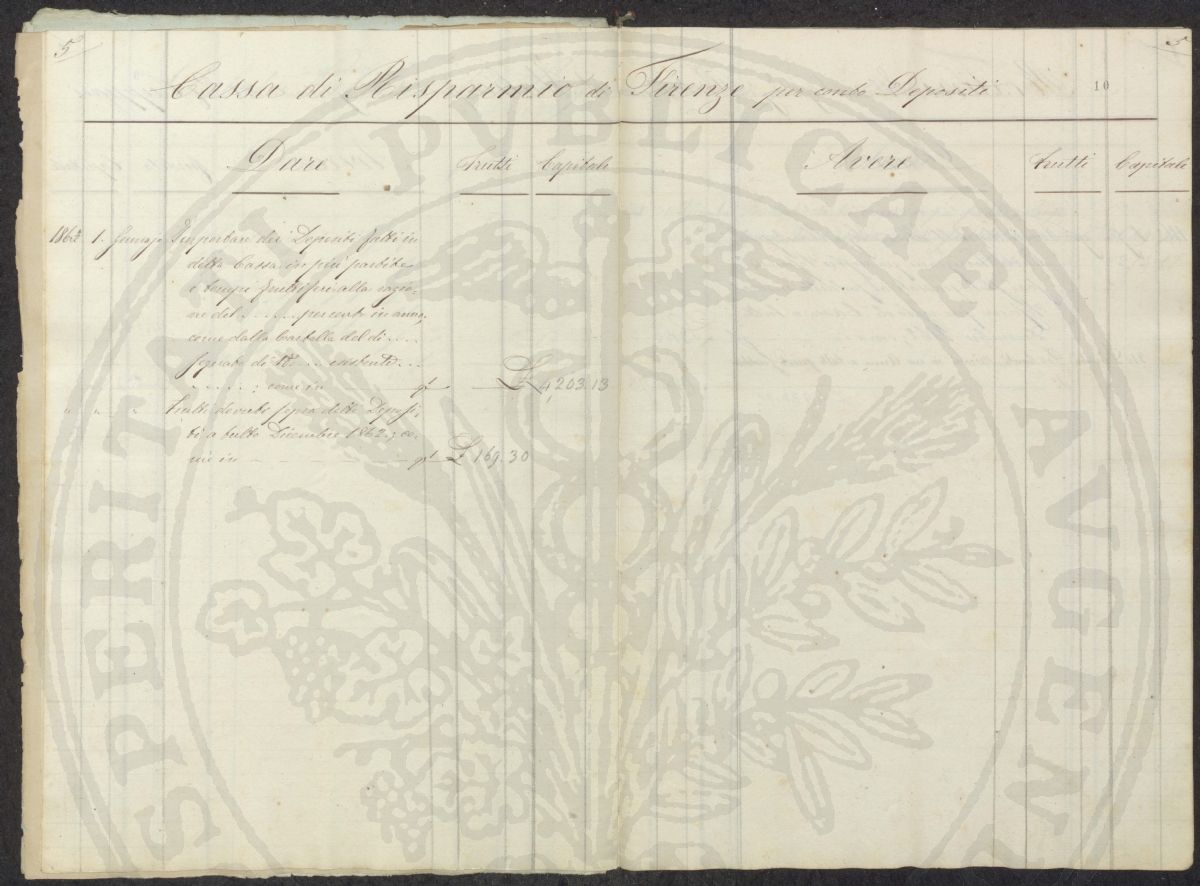 5
5
Cassa di Risparmio di Firenze per conto Depositi
10
Dare Frutti Capitali
Avere Frutti Capitali
1. Gennajo Importare dei Depositi fatti in
detta Cassa in più partite
e tempi fruttiferi alla ragio-
ne del ...... per cento in anno,
come dalla Cartella del di ....
segnata di N° .... esistenti ...
..... ; come in £ 4203.13
" " " Frutti dovuti sopra detti Deposi-
ti a tutto Dicembre 1862; co-
me in £ 169.30
SPERITATI PVBLICAE AVGEN